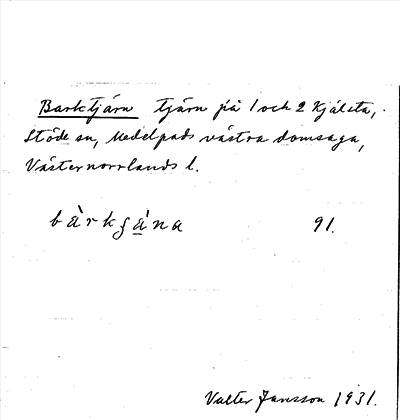 Barktjärn tjärn på 1 och 2 Kjälsta,
Stöde sn, Medelpads västra domsaga,
Västernorrlands l.
bàrkʃȧ̱na 91.
Valter Jansson 1931.